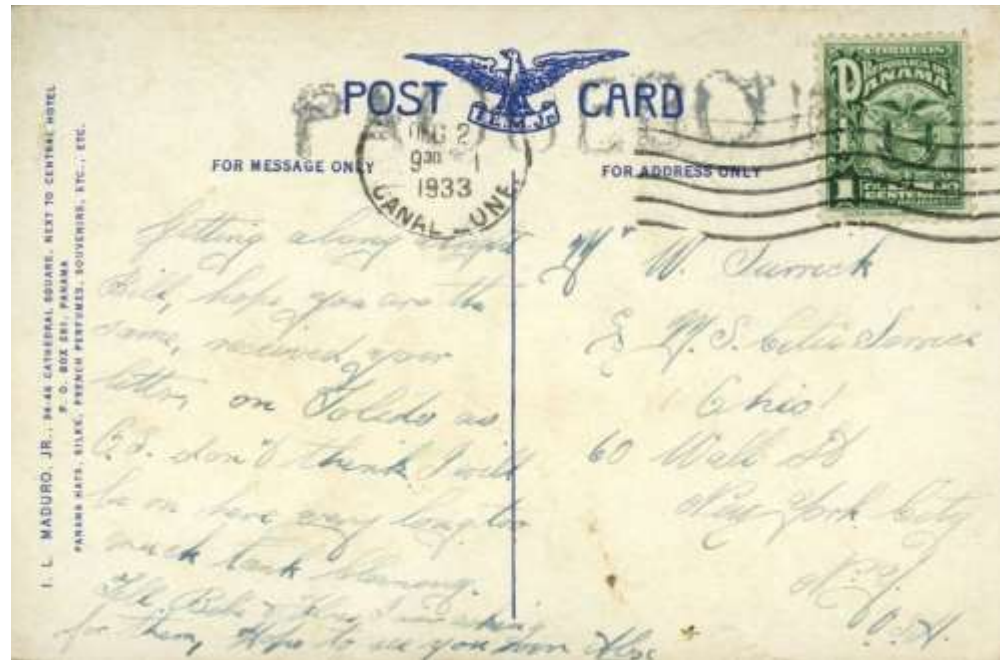 I. L. MADURO, JR., 34-46 CATHEDRAL SQUARE, NEXT TO CENTRAL HOTEL
P. O. BOX PANAMA
PANAMA HATS, SILKS, FRENCH PERFUMES, SOUVENIRS, ETC., ETC.
POST CARD
I.L.M.Jr.
FOR MESSAGE ONLY
FOR ADDRESS ONLY
2
9 30
1933
CANAL
CORREOS
REPUBLICA DE
PANAMA
1
Getting along alright
Bill, hope you are the
same, received your
letter on Toledo as
O.S. don't think I will
be on here very long too
much tank cleaning.
Tell Bob & I was asking
for them, Hope to see you soon
Mr W.
M.S. Cities Service
Ohio
60 Wall St
New York City
N.Y.